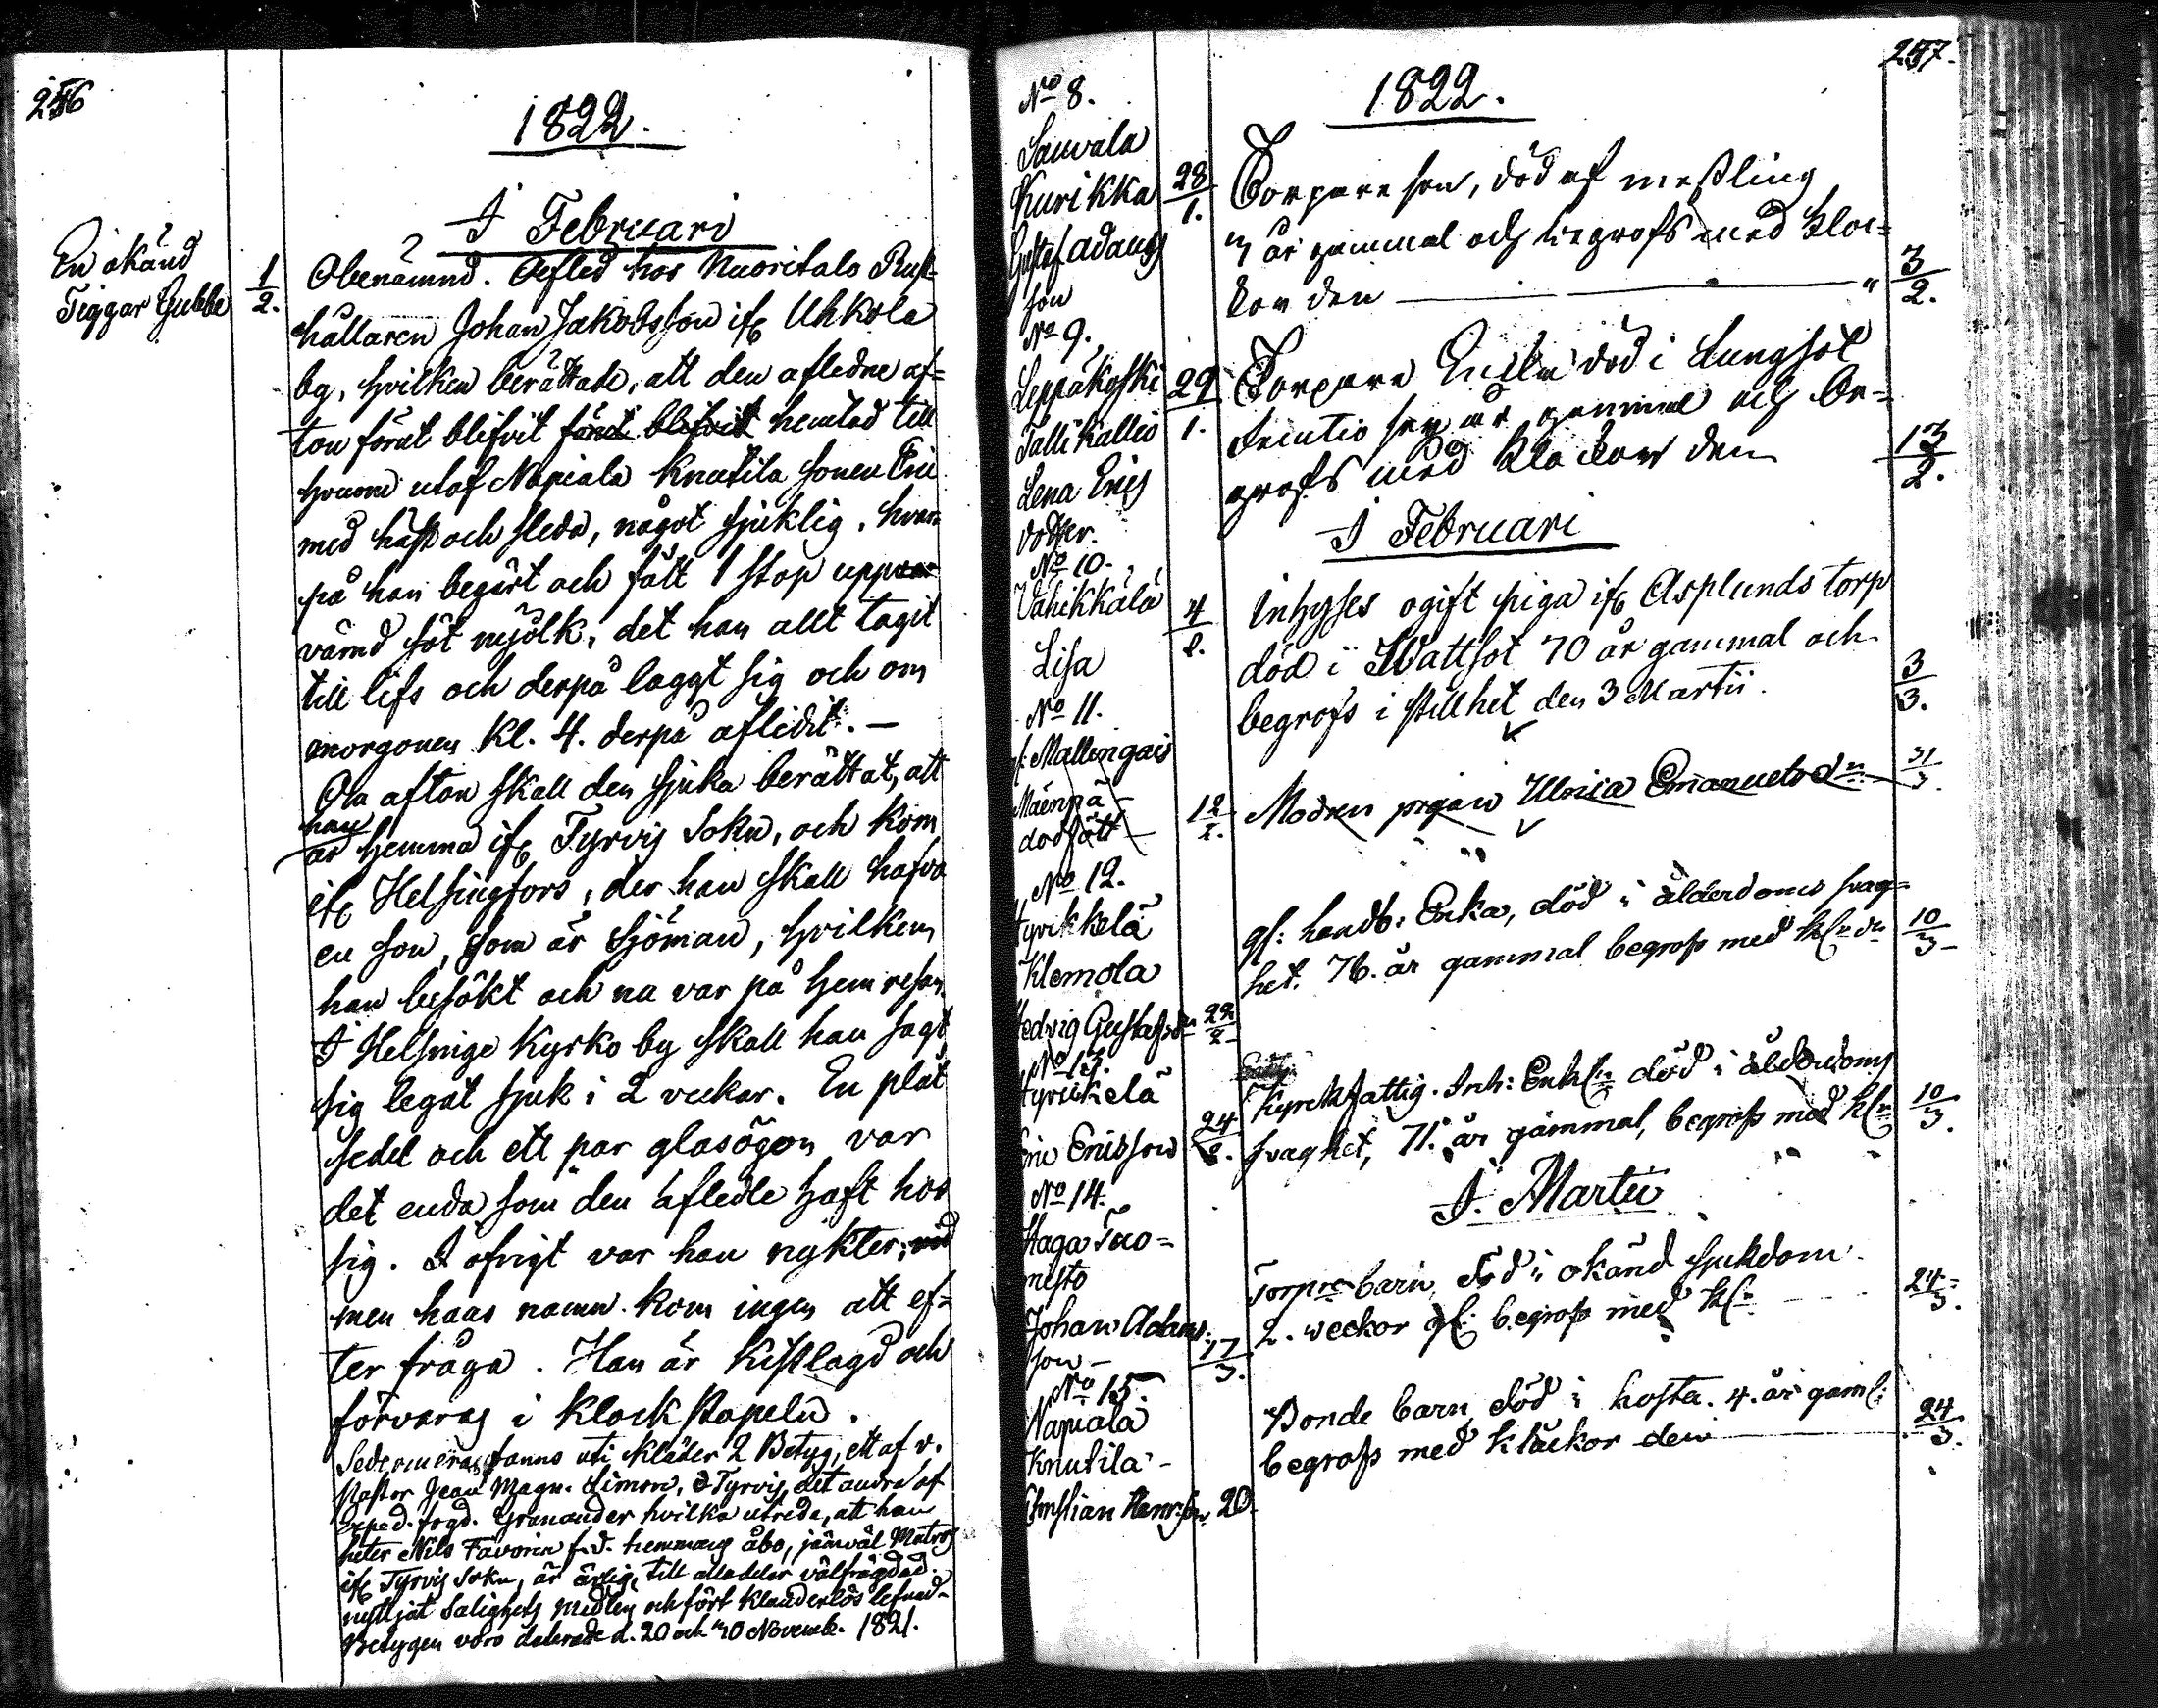 256
1822.
I Februari
En okänd
Tiggar Gubbe
1/2.
Obenämnd. Afled hos Nuoritalo Rust=
hållaren Johan Jakobsson ifr Uhkola
by, hvilken berättade, att den aflidne af=
ton förut blifvit förut blifvit hemtad till
honom utaf Napiala Knutila sonen Eric
med häst och släda, något sjuklig. hvar=
på han begärt och fått 1 stop uppvar
värmd söt mjölk, det han allt tagit
till lifs och derpå laggt sig och om
morgonen Kl. 4. derpå aflidit. —
Om afton skall den sjuka berättat, att
han
är hemma ifr Tyrvis Sokn, och kom
ifr Helsingfors, der han skall hafva
en son, som är Sjöman, hvilken
han besökt och nu var på hemresan.
I Helsinge Kyrko by skall han sagt
sig legat sjuk i 2 veckor. En plåt
sedel och ett par glasögon var
det enda som den afledne haft hos
sig. I öfrigt var han nykter,
men hans namn kom ingen att ef=
ter fråga. Han är Kistlagd och
förvaras i Klockstapeln.
Sedermeras fanns uti kläder 2 Betyg, ett af v.
Pastor Jean Magn. Limon, i Tyrvis, det andra af
Exped. fogd. Granander hvilka utreda, att han
heter Nils Favorin f.d. hemmans åbo, jämväl Matros
ifr Tyrvis Sokn, är ärlig, till alla delar välfrägdad.
nyttjat Salighets medlen och fört klanderlös lefnad-
Betygen voro daterade d. 20 och 30 Novemb. 1821.
257.
1822.
No 8.
Sauvala
Kurikka
Gustaf Adams
son
28/1.
Torpare son, död af meßling
år gammal och begrofs med kloc=
kor den — — " 3/2.
No 9.
Leppäkoski
Tallikallio
Lena Erics
dotter.
29/1.
Torpare Enka död i Lungsot
år gammal och be=
grofs med Klockor den 13/2.
I Februari
No 10.
Vähikkälä
Lisa
4/2.
Inhyses ogift piga ifr Asplunds torp
död i Wattsot 70 år gammal och
begrofs i stillhet den 3 Martii. 3/3.
No 11.
Mallingais
Mäenpä —
dödfött —
12/2.
Modren pigan Ulrica Emanuelsdr — 31/3.
No 12.
Hyrikkelä
Klemola
Hedvig Gustafsdr 22/2
gl: landb: Enka, död i ålderdoms svag=
het. 76. år gammal begrofs med klr dn 10/3 -
No 13.
Hyrikkelä
Eric Ericsson 24/2.
Kyrckfattig. Inh: död i ålderdoms
svaghet, 71. år gammal, begrofs med klr 10/3.
I. Martii
No 14.
Haga Tuo=
misto
Johan Adams.
son — 17/3.
Torpre barn, död i okänd sjukdom.
2. veckor gl: begrofs med klr — 24/3.
No 15.
Napiala
Knutila -
Christian Henr.son 20.
Bonde barn död i hosta. 4. år gaml:
begrofs med klåckor den — 24/3.